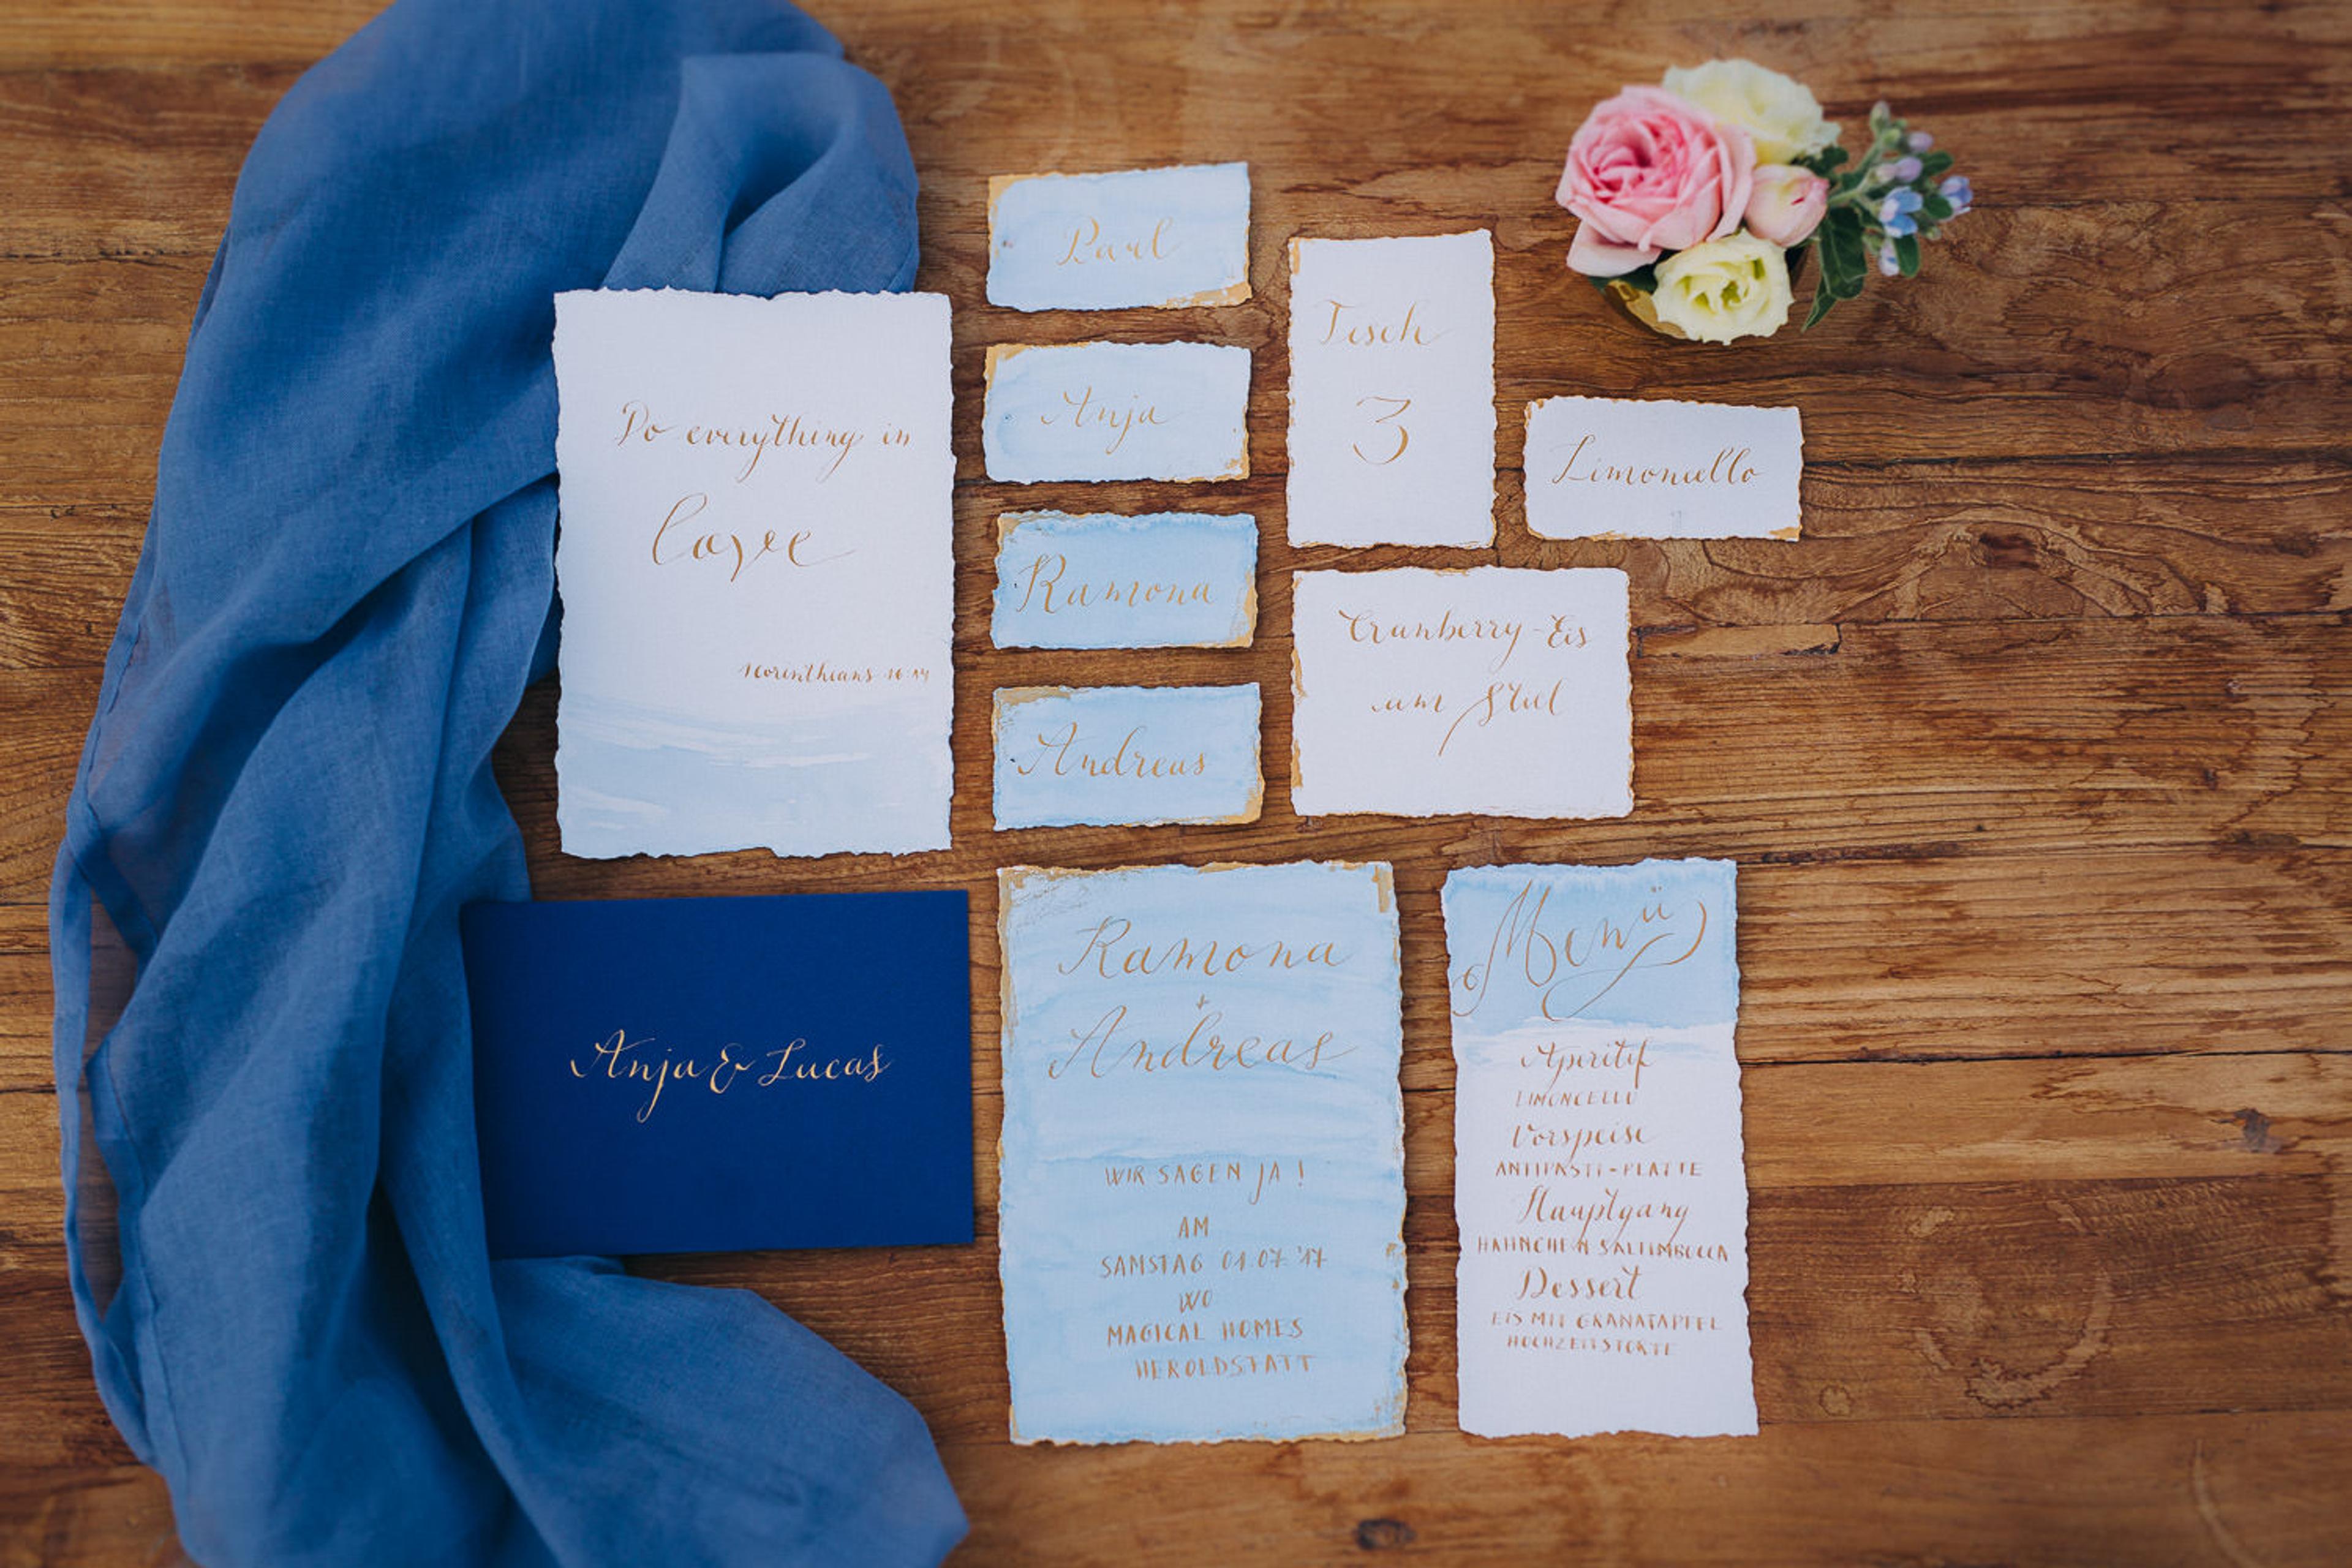 Do everything in
love
1 Corinthians 16:14
Paul
Anja
Ramona
Andreas
Tisch
3
Limoncello
Cranberry-Eis
am Stiel
Anja & Lucas
Ramona
+
Andreas
WIR SAGEN JA!
AM
SAMSTAG 01.07.'17
WO
MAGICAL HOMES
HEROLDSTATT
Menü
Aperitif
LIMONCELLO
Vorspeise
ANTIPASTI-PLATTE
Hauptgang
HÄHNCHEN SALTIMBOCCA
Dessert
EIS MIT GRANATAPFEL
HOCHZEITSTORTE